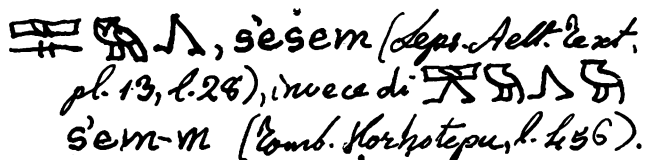 𓈙𓊃𓅓𓂻, śešem (Leps. Aelt. Text,
pl. 13, l. 28), invece di 𓅓𓂻𓅓
śem-m (Tomb. Horhotepu, l. 456).